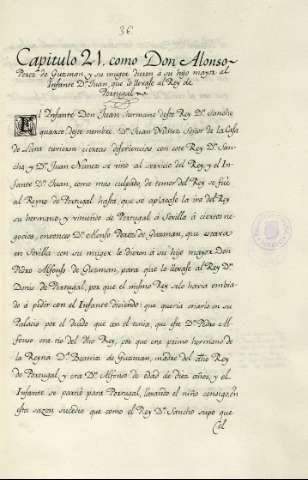 36
Capitulo 21. como Don Alonso
Perez de Guzman y su muger dieron a su hijo mayor al
Infante Dn. Juan, que lo llevase al Rey de
Portugal.
El Infante Don Juan hermano deste Rey Dn. Sancho
quarto deste nombre. Dn. Juan Nuñez Señor de la Casa
de Lara tuvieron ciertas diferencias con este Rey Dn. San-
cho, y Dn. Juan Nunez se vino al servicio del Rey, y el In-
fante Dn. Juan, como mas culpado, de temor del Rey se fué
al Reyno de Portugal hasta que se aplacase la ira del Rey
su hermano, y vinose de Portugal á Sevilla á ciertos ne-
gocios, entonces Dn. Alonso Perez de Guzman, que estava
en Sevilla con su muger le dieron á su hijo mayor Don
Pedro Alfonso de Guzman, para que le llevase al Rey Dn.
Donis de Portugal, por que el mismo Rey selo havia embia-
do á pedir con el Infante diciendo: que queria criarlo en su
Palacio por el deudo que con el tenia, que este Dn. Pedro Al-
fonso era tio del dho Rey, por que era primo hermano de
la Reyna Dª. Beatriz de Guzman, madre del dho Rey
de Portugal, y era Dn. Alfonso de edad de diez años, y el
Infante se partió para Portugal, llevando el niño consigo, en
esta sazon sucedio que como el Rey Dn. Sancho supo que
el